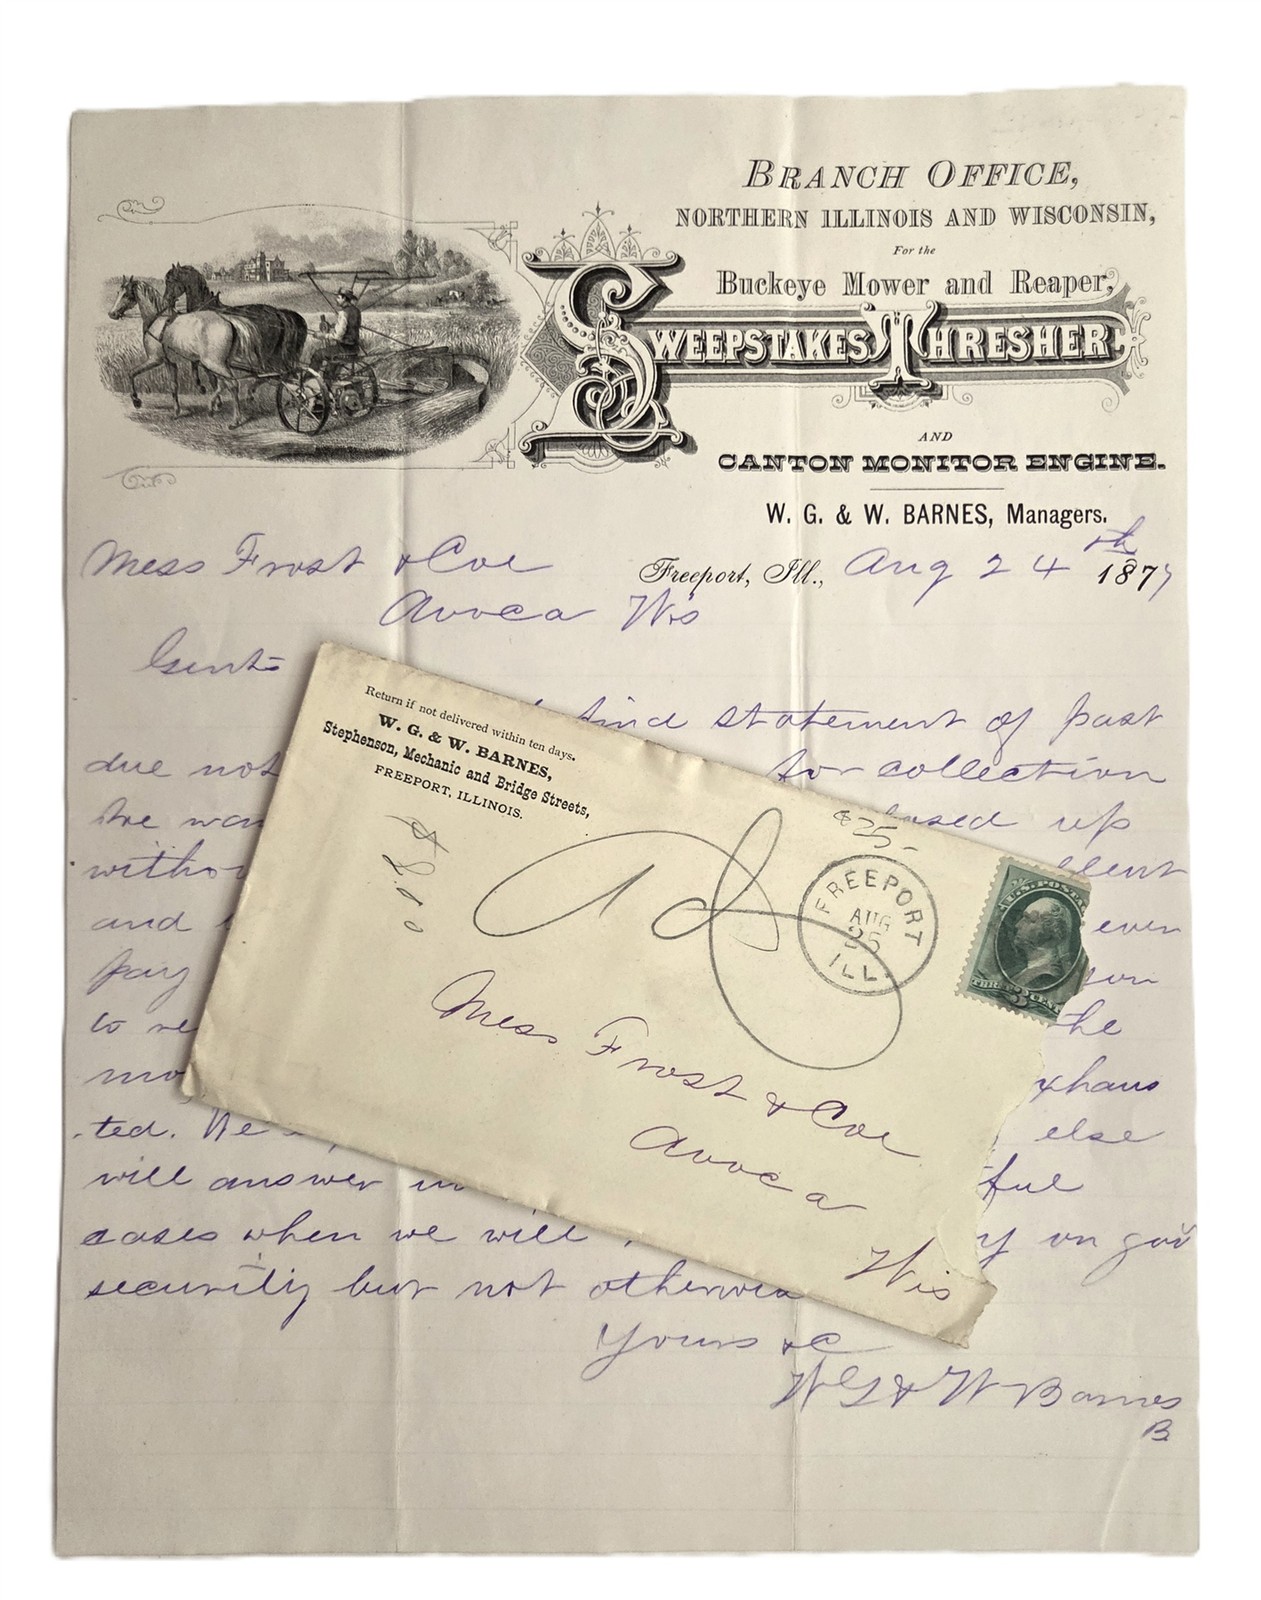 BRANCH OFFICE,
NORTHERN ILLINOIS AND WISCONSIN,
For the
Buckeye Mower and Reaper,
SWEEPSTAKES THRESHER
AND
CANTON MONITOR ENGINE.
W. G. & W. BARNES, Managers.
Mess Frost & Coe
Freeport, Ill., Aug 24th 1877
Avoca Wis
Gents
find statement of past
due not for collection
We up
witho
and even
pay
to re the
mo exhaus
ted. We else
will answer in ful
cases when we will y on god
security but not otherwise
Yours &C
W G & W Barnes
B
Return if not delivered within ten days.
W. G. & W. BARNES,
Stephenson, Mechanic and Bridge Streets,
FREEPORT, ILLINOIS.
$25-
FREEPORT
AUG
25
ILL.
U.S. POSTA
THREE 3 CENT
Mess Frost & Coe
Avoca
Wis